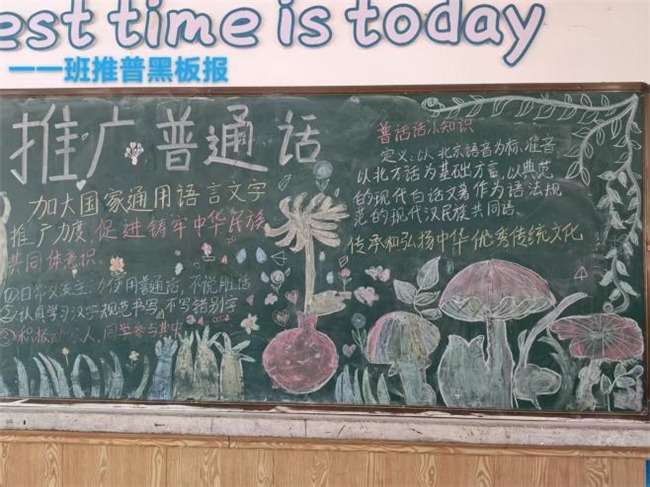 est time is today
一一班推普黑板报
推广普通话
加大国家通用语言文字
推广力度,促进铸牢中华民族
共同体意识
①日常交流主动使用普通话,不说脏话
②认真学习汉字规范书写,不写错别字
③积极 人,同学参与其中
普活话小知识
定义:以北京语音为标准音,
以北方话为基础方言,以典范
的现代白话文著作为语法规
范的现代汉民族共同语。
传承和弘扬中华优秀传统文化